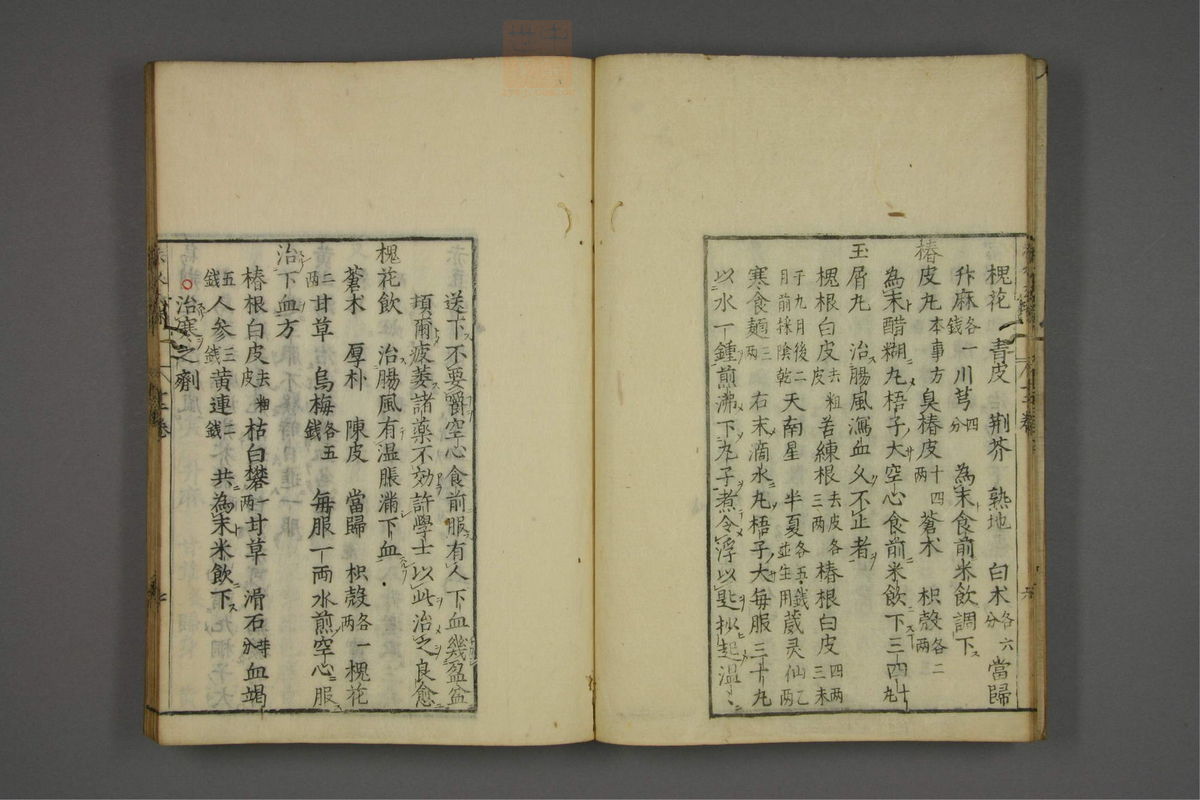 槐花 青皮 荆芥 熟地 白术各六分 當歸
升麻各一錢 川芎四分 為末食前米飲調下
椿皮丸本事方 臭椿皮十四兩 蒼术 枳殼各二兩
為末醋糊丸梧子大空心食前米飲下三四十丸
玉屑丸 治腸風瀉血久不止者
槐根白皮去粗皮 苦練根去皮各三兩 椿根白皮四兩三末
于九月後二月前採陰乾 天南星 半夏各五錢並生用 葳灵仙乙兩
寒食麵三兩 右末滴水丸梧子大每服三十丸
以水一鍾煎沸下丸子煮令浮以匙抄起温
送下不要嚼空心食前服有人下血幾盈盆
頃爾疲萎諸藥不効許學士以此治之良愈
槐花飲 治腸風有温脹滿下血
蒼木 厚朴 陳皮 當歸 枳殼各一兩 槐花
二兩 甘草 烏梅各五錢 毎服一兩水煎空心服
治下血方
椿根白皮去粗皮 枯白礬一兩 甘草 滑石 血竭
五錢 人参三錢 黄連二錢 共為末米飲下
治寒之劑